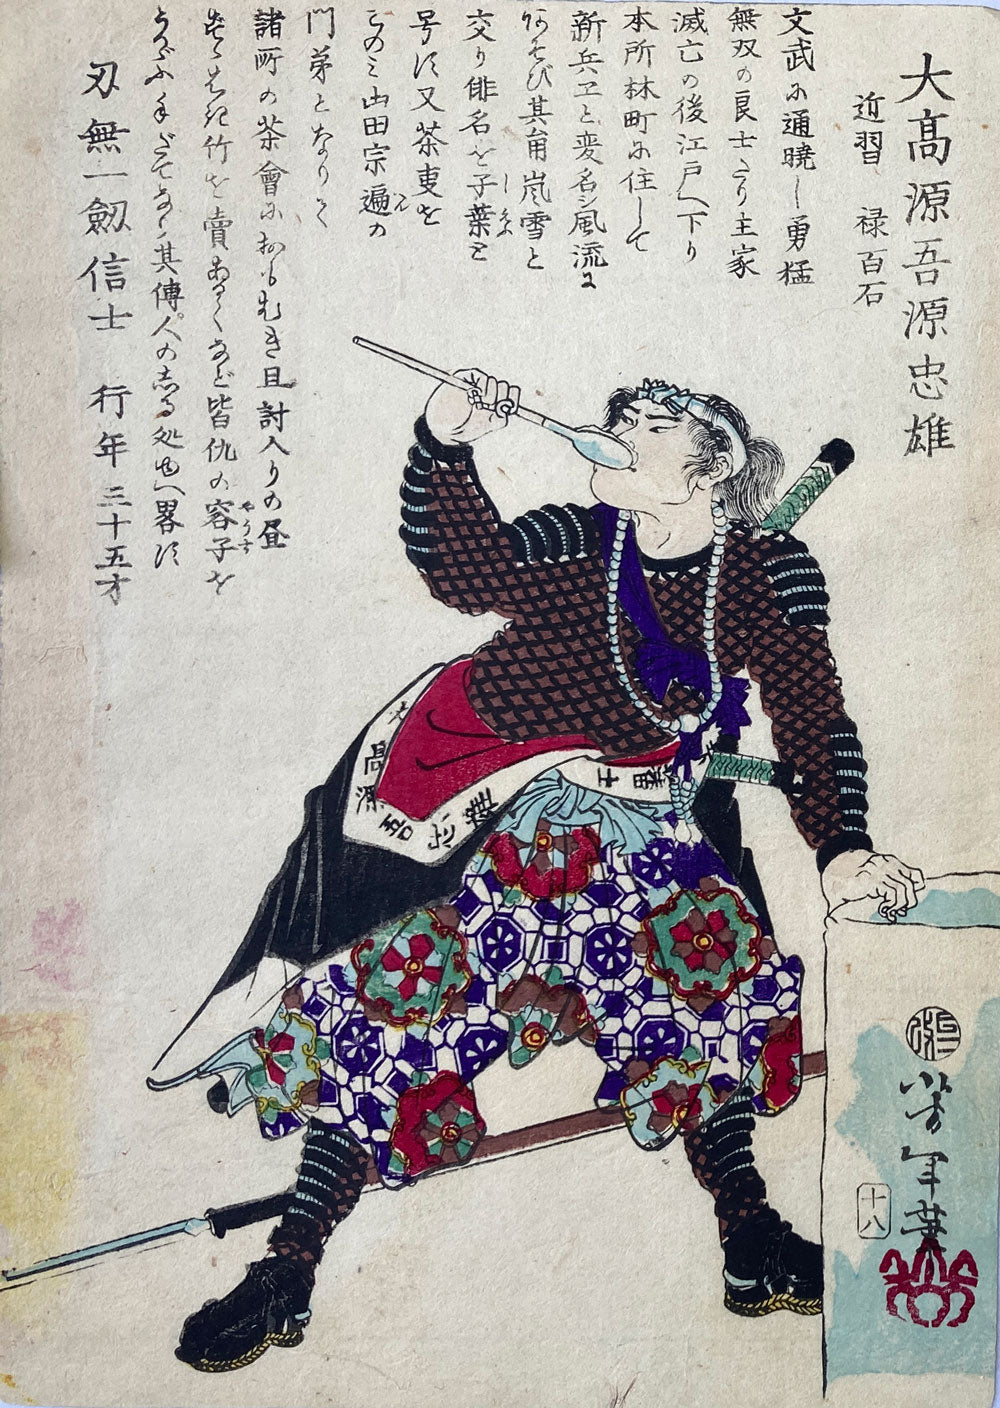 大髙源吾源忠雄
近習 禄百石
文武に通曉し勇猛
無双の良士たり主家
滅亡の後江戸へ下り
本所林町に住して
新兵ヱと変名シ風流に
あそび其角嵐雪と
交り俳名を子葉と
号す又茶事を
このみ山田宗遍の
門弟となりて
諸所の茶會におもむき且討入りの昼
すゝはき竹を賣あるくなど皆仇の容子を
うかゞふ手だてなり其傳人のしる処ゆへ畧す
刃無一劔信士 行年三十五才
大高源吾
芳年筆
十八